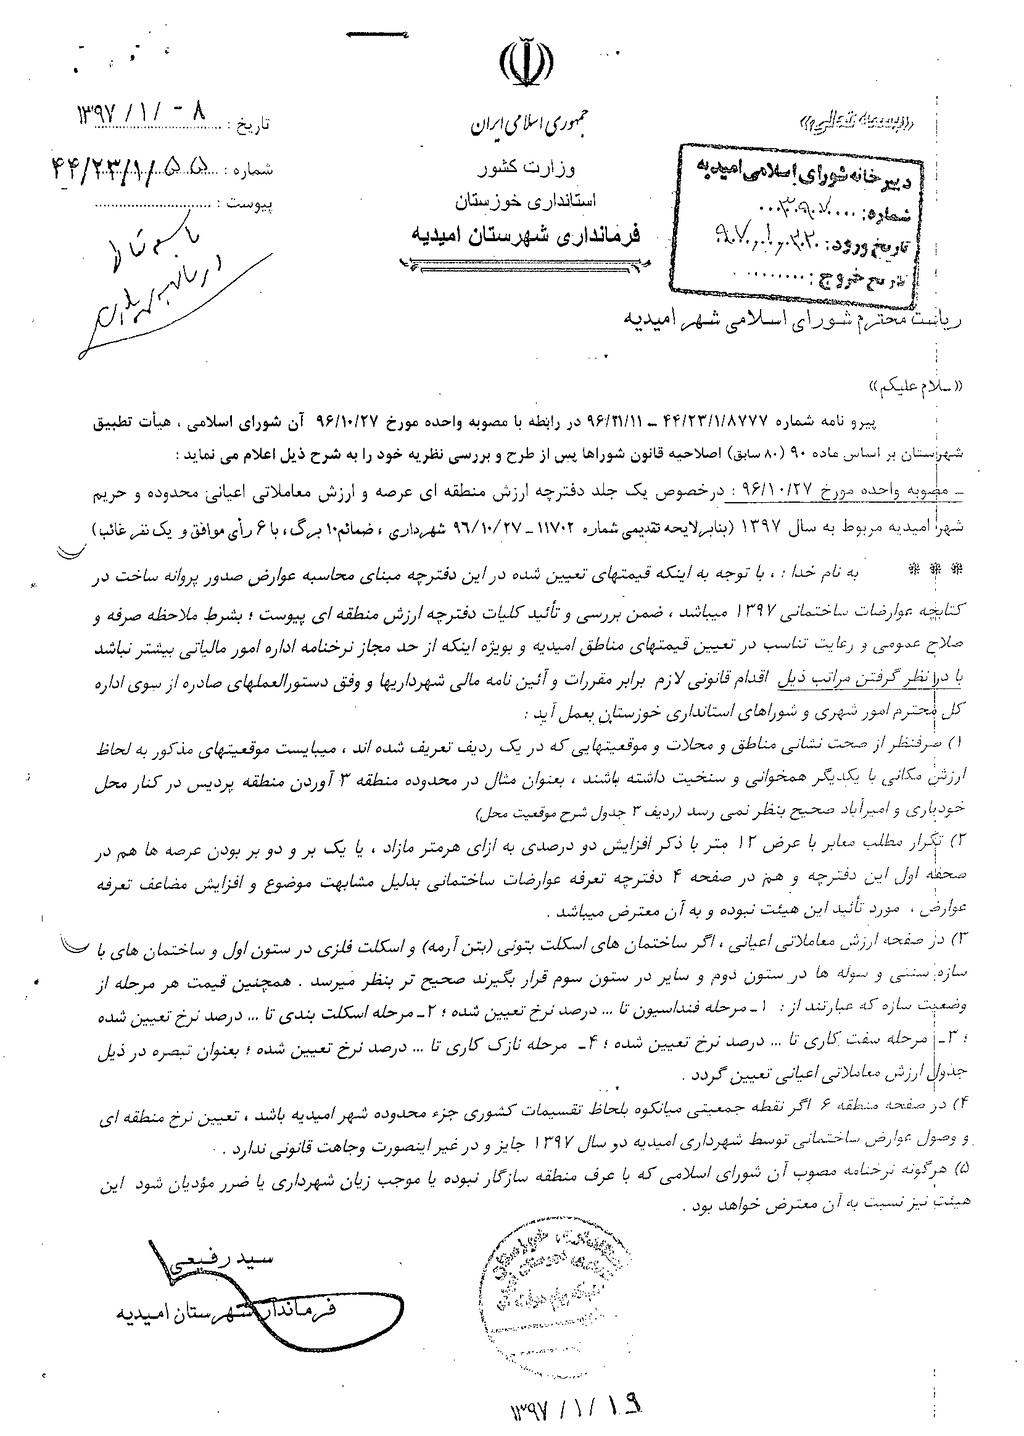 «بسمه تعالی»
جمهوری اسلامی ایران
وزارت کشور
استانداری خوزستان
فرمانداری شهرستان امیدیه
تاریخ : ۱۳۹۷/۱/۰۸
شماره : ۴۴/۲۳/۱/۵۵
پیوست :
دبیرخانه شورای اسلامی امیدیه
شماره:
تاریخ ورود:
تاریخ خروج :
باسمه تعالی
ریاست محترم شورای اسلامی شهر امیدیه
«سلام علیکم»
پیرو نامه شماره ۴۴/۲۳/۱/۸۷۷۷ – ۹۶/۲۱/۱۱ در رابطه با مصوبه واحده مورخ ۹۶/۱۰/۲۷ آن شورای اسلامی ، هیأت تطبیق
شهرستان بر اساس ماده ۹۰ (۸۰ سابق) اصلاحیه قانون شوراها پس از طرح و بررسی نظریه خود را به شرح ذیل اعلام می نماید :
ـ مصوبه واحده مورخ ۹۶/۱۰/۲۷ : درخصوص یک جلد دفترچه ارزش منطقه ای عرصه و ارزش معاملاتی اعیانی محدوده و حریم
شهر امیدیه مربوط به سال ۱۳۹۷ (بنابر لایحه تقدیمی شماره ۱۱۷۰۲ – ۹۶/۱۰/۲۷ شهرداری ، ضمائم ۱۰ برگ، با ۶ رأی موافق و یک نفر غائب)
*** به نام خدا : ، با توجه به اینکه قیمتهای تعیین شده در این دفترچه مبنای محاسبه عوارض صدور پروانه ساخت در
کتابچه عوارضات ساختمانی ۱۳۹۷ میباشد ، ضمن بررسی و تأئید کلیات دفترچه ارزش منطقه ای پیوست ؛ بشرط ملاحظه صرفه و
صلاح عمومی و رعایت تناسب در تعیین قیمتهای مناطق امیدیه و بویژه اینکه از حد مجاز نرخنامه اداره امور مالیاتی بیشتر نباشد
با در نظر گرفتن مراتب ذیل اقدام قانونی لازم برابر مقررات و آئین نامه مالی شهرداریها و وفق دستورالعملهای صادره از سوی اداره
کل محترم امور شهری و شوراهای استانداری خوزستان بعمل آید :
۱) صرفنظر از صحت نشانی مناطق و محلات و موقعیتهایی که در یک ردیف تعریف شده اند ، میبایست موقعیتهای مذکور به لحاظ
ارزش مکانی با یکدیگر همخوانی و سنخیت داشته باشند ، بعنوان مثال در محدوده منطقه ۳ آوردن منطقه پردیس در کنار محل
خودیاری و امیرآباد صحیح بنظر نمی رسد (ردیف ۳ جدول شرح موقعیت محل)
۲) تکرار مطلب معابر با عرض ۱۲ متر با ذکر افزایش دو درصدی به ازای هرمتر مازاد ، یا یک بر و دو بر بودن عرصه ها هم در
صحفه اول این دفترچه و هم در صفحه ۴ دفترچه تعرفه عوارضات ساختمانی بدلیل مشابهت موضوع و افزایش مضاعف تعرفه
عوارض ، مورد تأئید این هیئت نبوده و به آن معترض میباشد .
۳) در صفحه ارزش معاملاتی اعیانی ، اگر ساختمان های اسکلت بتونی (بتن آرمه) و اسکلت فلزی در ستون اول و ساختمان های با
سازه سنتی و سوله ها در ستون دوم و سایر در ستون سوم قرار بگیرند صحیح تر بنظر میرسد . همچنین قیمت هر مرحله از
وضعیت سازه که عبارتند از : ۱ـ مرحله فنداسیون تا ... درصد نرخ تعیین شده ؛ ۲ـ مرحله اسکلت بندی تا ... درصد نرخ تعیین شده
؛ ۳ـ مرحله سفت کاری تا ... درصد نرخ تعیین شده ؛ ۴ـ مرحله نازک کاری تا ... درصد نرخ تعیین شده ؛ بعنوان تبصره در ذیل
جدول ارزش معاملاتی اعیانی تعیین گردد .
۴) در صفحه منطقه ۶ اگر نقطه جمعیتی میانکوه بلحاظ تقسیمات کشوری جزء محدوده شهر امیدیه باشد ، تعیین نرخ منطقه ای
و وصول عوارض ساختمانی توسط شهرداری امیدیه دو سال ۱۳۹۷ جایز و در غیر اینصورت وجاهت قانونی ندارد .
۵) هرگونه نرخنامه مصوب آن شورای اسلامی که با عرف منطقه سازگار نبوده یا موجب زیان شهرداری یا ضرر مؤدیان شود این
هیئت نیز نسبت به آن معترض خواهد بود .
سید رفیعی
فرماندار شهرستان امیدیه
۱۳۹۷/۱/۱۹